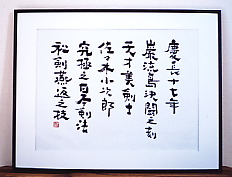 慶長十七年
巌流島決闘之刻
天才美剣士
佐々木小次郎
究極之自然剣法
秘剣燕返之技